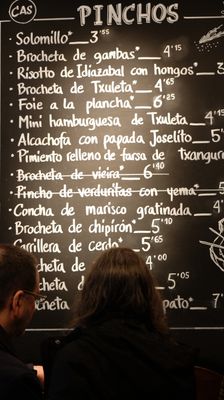 CAS
PINCHOS
· Solomillo*__3'55
· Brocheta de gambas*__4'15
· Risotto de Idiazabal con hongos*__3
· Brocheta de Txuleta*__4'65
· Foie a la plancha*__6'25
· Mini hamburguesa de Txuleta__4
· Alcachofa con papada Joselito__5
· Pimiento relleno de farsa de txangur
· Brocheta de vieira*__6'40
· Pincho de verduritas con yema*__5
· Concha de marisco gratinada__4
· Brocheta de chipirón*__4'15
Carrillera de cerdo*__5'65
ocheta de
4'00
ocheta de
5'05
neta
pato